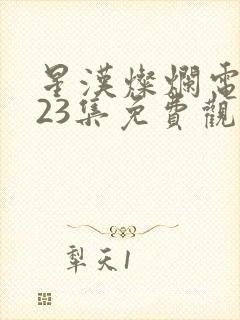 星漢燦爛電
23集免費觀
犁天1